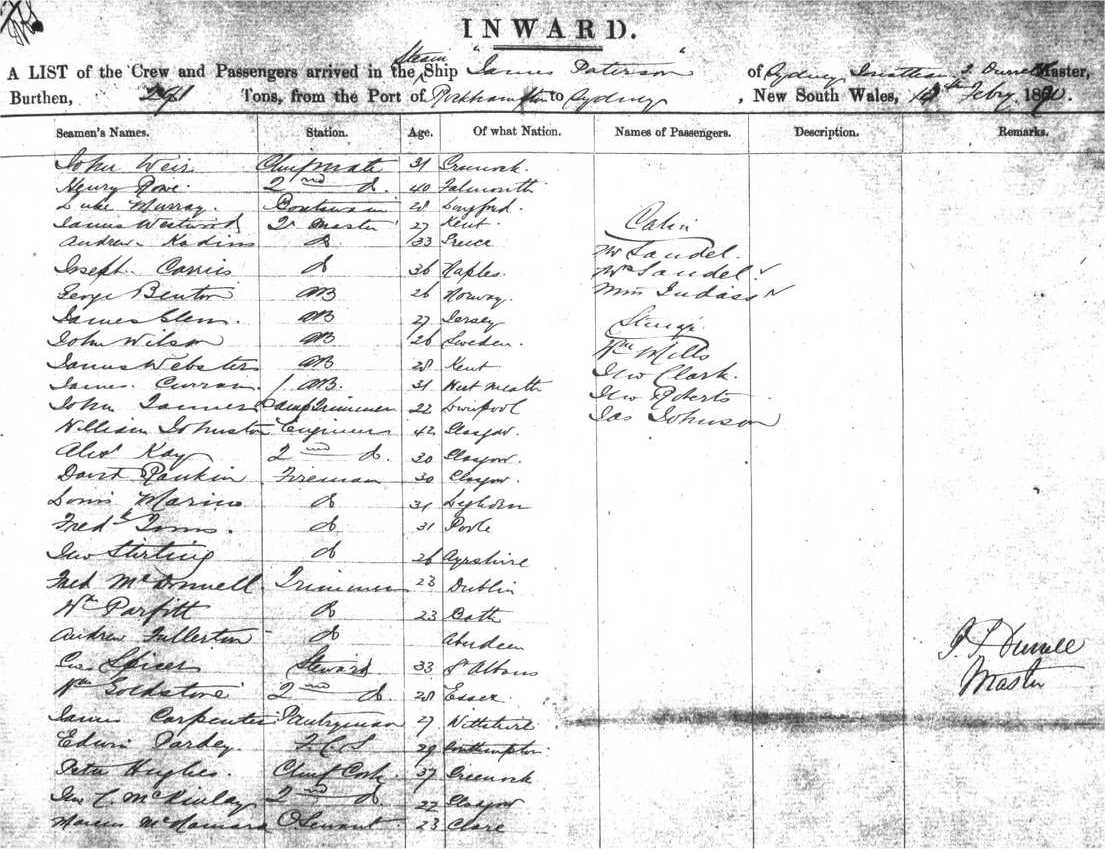 INWARD.
A LIST of the Crew and Passengers arrived in the Steam Ship "James Paterson" of Sydney, Master,
Burthen, Tons, from the Port of Rockhampton to Sydney, New South Wales, Feby 1890.
Seamen's Names. Station. Age. Of what Nation. Names of Passengers. Description. Remarks.
John Weir Chief Mate 31 Greenock.
Henry Rowe 2nd do. 40 Falmouth
Luke Murray. Boatswain 28 Longford.
James Westwood Qr Master 27 Kent.
Andrew do 33 Greece
Cabin
Joseph do 36 Naples.
Mr Sandel.
Mrs Sandel
George Benton AB 26 Norway.
Miss
James AB 27 Jersey
Steerage
John Wilson AB 26 Sweden.
Wm Mills
James Webster AB 28 Kent
Jno Clark.
James Curran. AB. 31 West Meath
Jno Roberts
John James Lamp Trimmer 22 Liverpool
Jas Johnson
William Johnston Engineer 42 Glasgow.
Alexr Kay 2nd do. 30 Glasgow.
David Rankin Fireman 30 Glasgow.
Marino do 31 Leghorn
Fredk Toms. do 31 Poole
Jno Stirling do 26 Ayrshire
Fred McDonnell. Trimmer 23 Dublin
Wm Parfitt do 23 Bath
Andrew Fullerton do Aberdeen
Spiser Steward 33 St Albans
J. S. Durrell
Master
Wm Goldstone 2nd do. 28 Essex
James Carpenter Pantryman 27 Wiltshire
Edwin Pardey. F.C.S 29 Southampton
Peter Hughes. Chief Cook. 37 Greenock
Jno C. McKinlay 2nd do. 22 Glasgow
McNamara 23 Clare